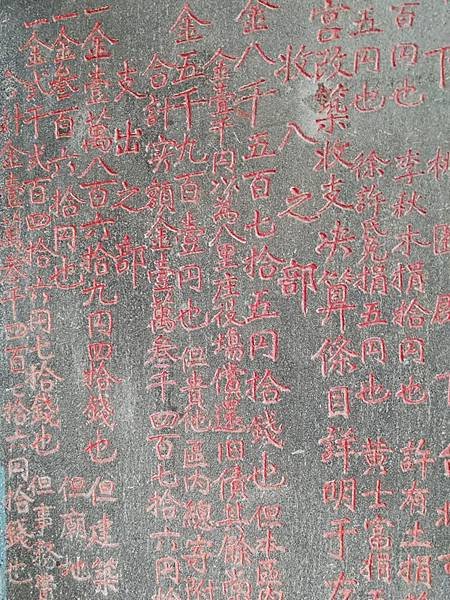 下 桃園厝 下
百円也 李秋木捐拾円也 許有土捐
五円也 徐許氏 捐五円也 黃士富捐
宮改築收支决算條目詳明于左
收入之部
金八千五百七拾五円拾錢也 但本區內
金壹千円以萬人里庄役場償還旧債其餘
金五千九百壹円也 但書他區內總寄附
合計実額金壹萬叁千四百七拾六円拾
支出之部
一金壹萬八百六拾九円四拾錢也 但建築
一金叁百六拾円也 但廟地
一金貳千貳百四拾六円七拾錢也 但事務費
合計金壹萬叁千四百七拾六円拾錢也